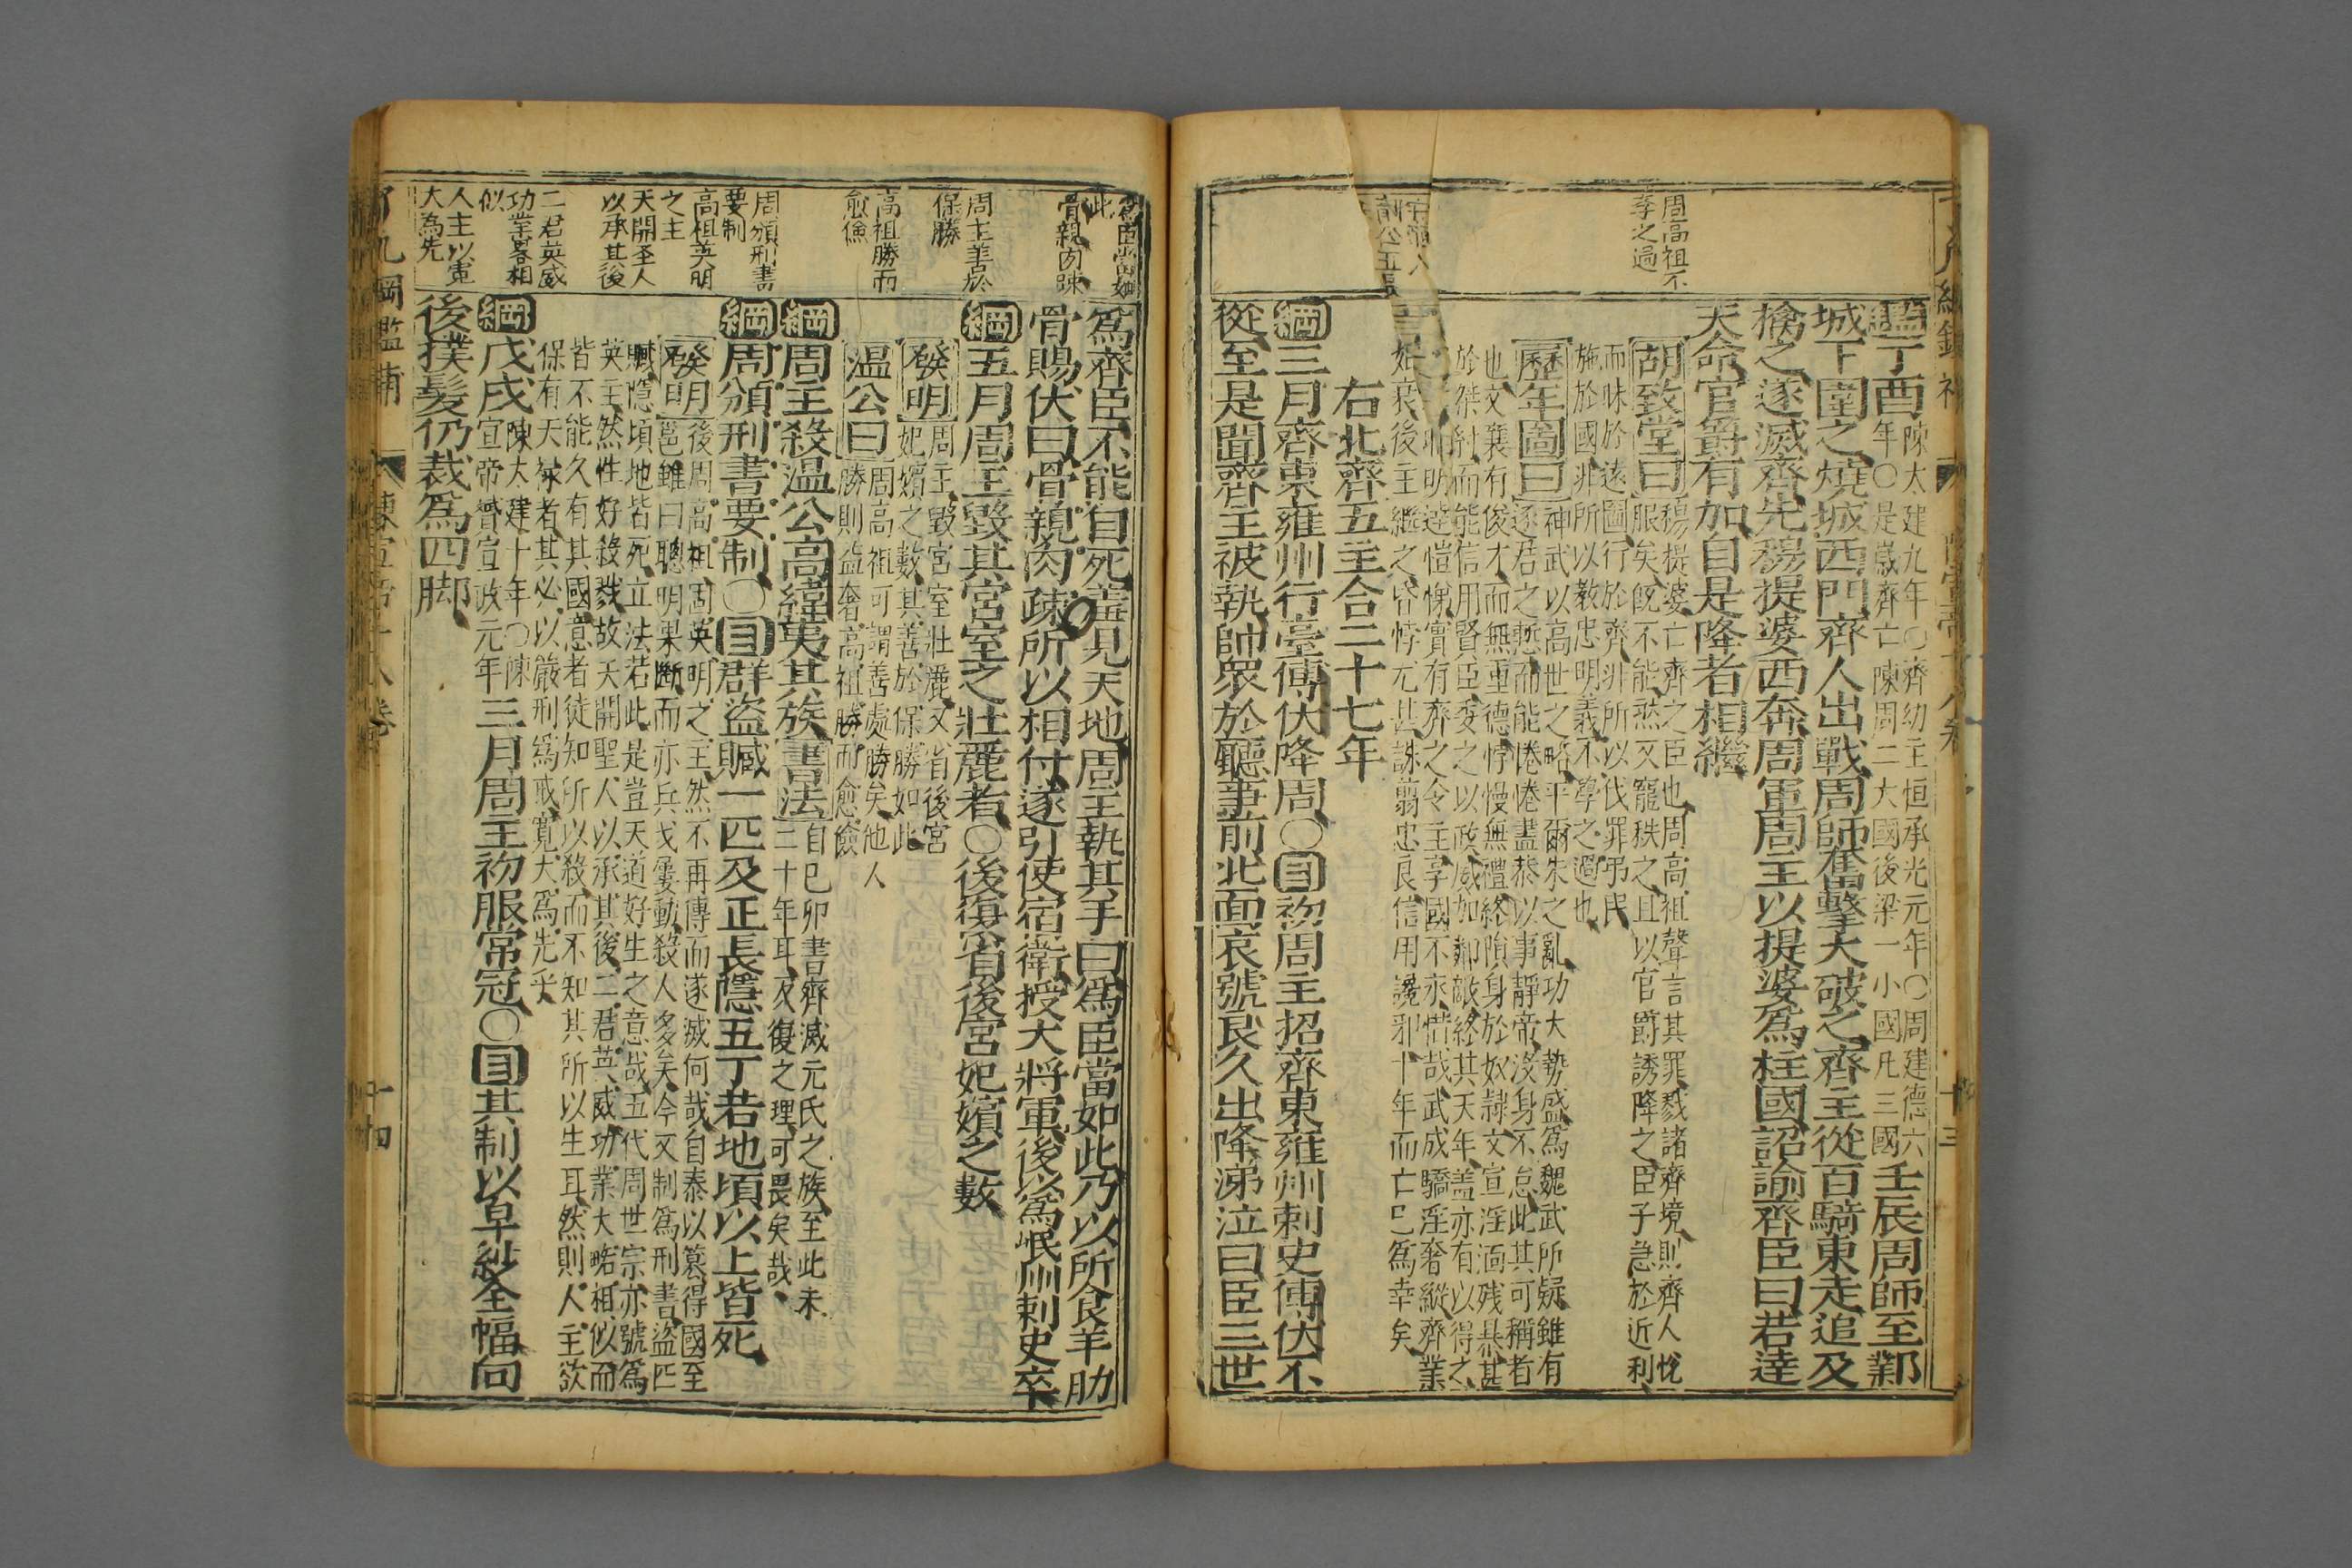 周高祖不
孝之過
鑑丁酉陳太建九年○齊幼主恒承光元年○周建德六
年○是歲齊亡陳周二大國後梁一小國凡三國壬辰周師至鄴
城下圍之燒城西門齊人出戰周師奮擊大破之齊主從百騎東走追及
擒之遂滅齊先穆提婆西奔周軍周主以提婆爲柱國詔諭齊臣曰若達
天命官爵有加自是降者相繼
胡致堂曰穆提婆亡齊之臣也周高祖聲言其罪戮諸齊境則齊人悅
服矣旣不能然又寵秩之且以官爵誘降之臣子急於近利
而昧於遠圖行於齊非所以伐罪弔民
施於國非所以教忠明義不學之過也
歷年圖曰神武以高世之略平爾朱之亂功大勢盛爲魏武所疑雖有
逐君之慙而能惓惓盡恭以事靜帝沒身不怠此其可稱者
也文襄有俊才而無重德悖慢無禮終隕身於奴隸文宣淫酗残暴甚
於桀紂而能信用賢臣委之以政威加鄰敵終其天年盖亦有以得之
昭明達愷悌實有齊之令主享國不永惜哉武成驕淫奢縱齊業
始衰後主繼之昏悖尤甚誅翦忠良信用讒邪十年而亡已爲幸矣
右北齊五主合二十七年
綱三月齊東雍州行臺傅伏降周○目初周主招齊東雍州刺史傅伏不
從至是聞齊王被執帥衆於聽事前北面哀號良久出降涕泣曰臣三世
爲臣當如
此
骨親肉踈
周主善於
保勝
高祖勝而
愈儉
周頒刑書
要制
高祖英明
之主
天開圣人
以承其後
二君英威
功業畧相
似
人主以寬
大為先
爲齊臣不能自死羞見天地周主執其手曰爲臣當如此乃以所食羊肋
骨賜伏曰骨親肉疎所以相付遂引使宿衛授大將軍後以爲岷州剌史卒
綱五月周主毀其宮室之壯麗者○後復省後宮妃嬪之數
發明周主毀宮室壯麗又省後宮
妃嬪之數其善於保勝如此
温公曰周高祖可謂善處勝矣他人
勝則益奢高祖勝而愈儉
綱周主殺温公高緯夷其族書法自己卯書齊滅元氏之族至此未
二十年耳反復之理可畏矣哉
綱周頒刑書要制○目群盜贓一匹及正長隱五丁若地頃以上皆死
發明後周高祖固英明之主然不再傳而遂滅何哉自泰以篡得國至
邕雖曰聰明果斷而亦兵戈屢動殺人多矣今又制爲刑書盜匹
贓隱頃地皆死立法若此是豈天道好生之意哉五代周世宗亦號爲
英主然性好殺戮故天開聖人以承其後二君英威功業大略相似而
皆不能久有其國意者徒知所以殺而不知其所以生耳然則人主欲
保有天祿者其必以嚴刑爲戒寬大爲先乎
綱戊戌陳太建十年○陳
宣帝贇宣政元年三月周主初服常冠○目其制以皁紗全幅向
後襆髮仍裁爲四脚